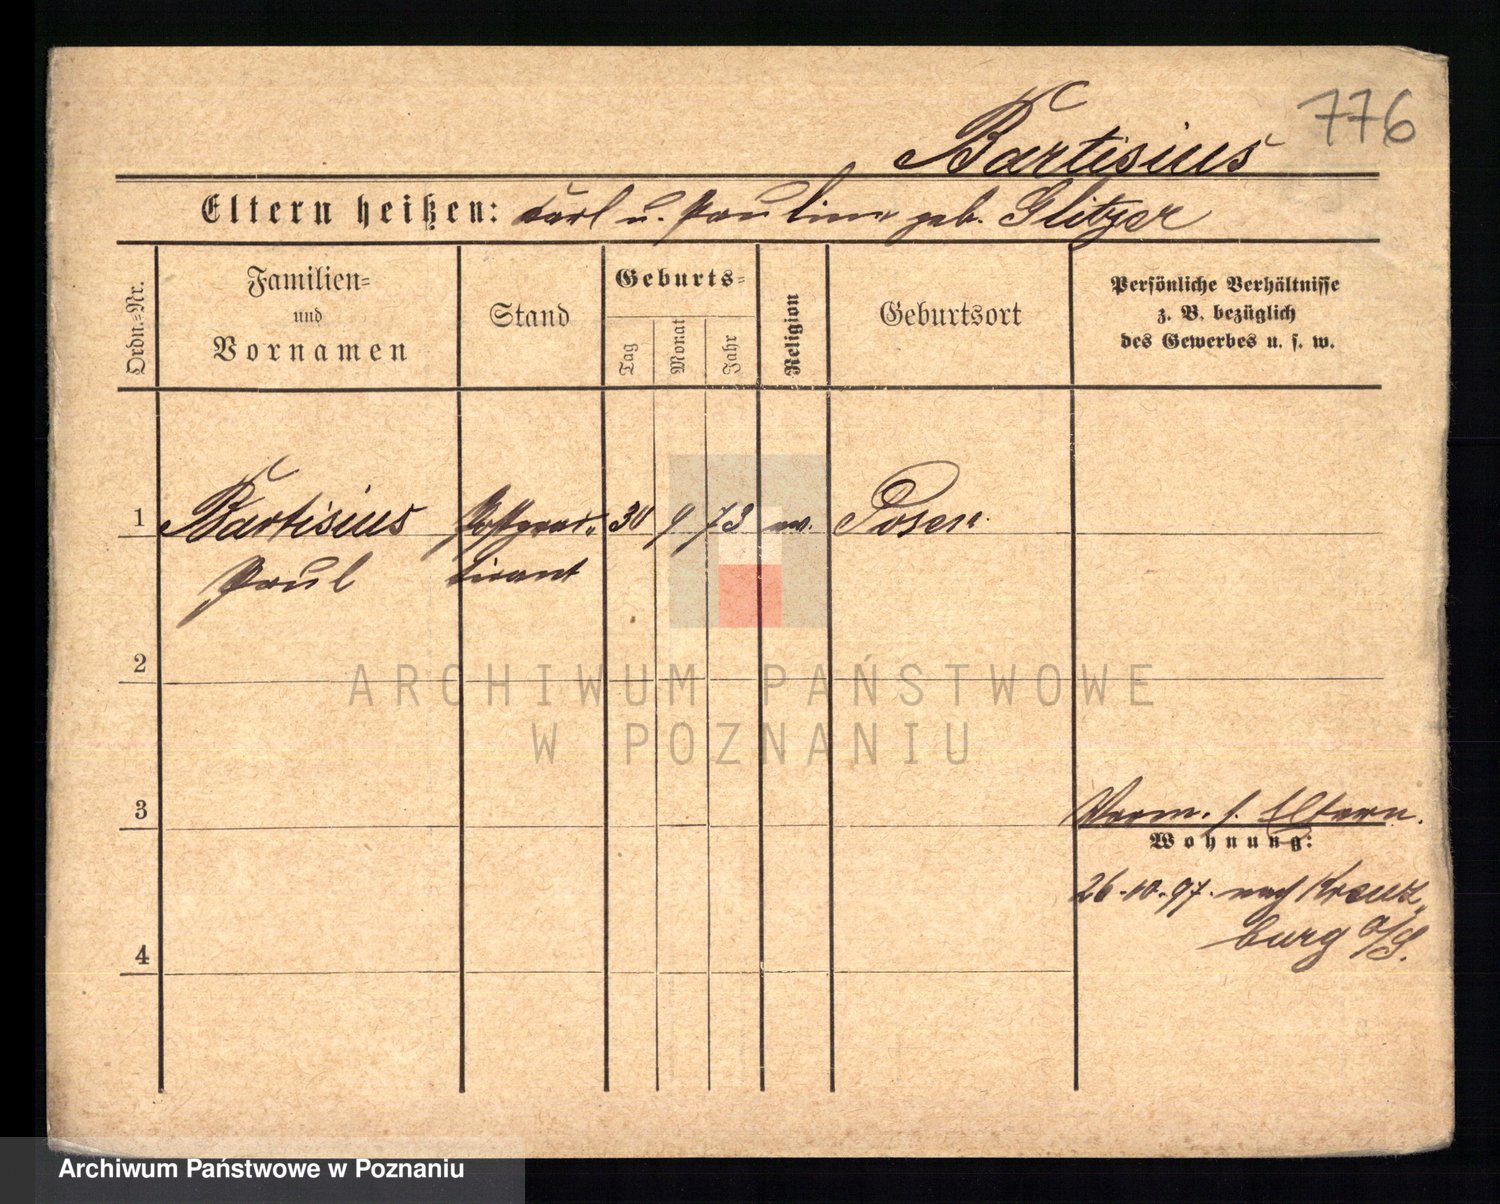 776
Bartisius
Eltern heißen: Karl u. Pauline geb. Glitzer
Ordn.-Nr.
Familien-
und
Vornamen
Stand
Geburts-
Tag
Monat
Jahr
Religion
Geburtsort
Persönliche Verhältnisse
z. B. bezüglich
des Gewerbes u. s. w.
1 Bartisius 30 9 73 ev. Posen
Paul
2
ARCHIWUM PAŃSTWOWE
W POZNANIU
3
Verm. s. Eltern.
Wohnung:
26.10.97. nach Kreuz-
burg O/S.
4
Archiwum Państwowe w Poznaniu